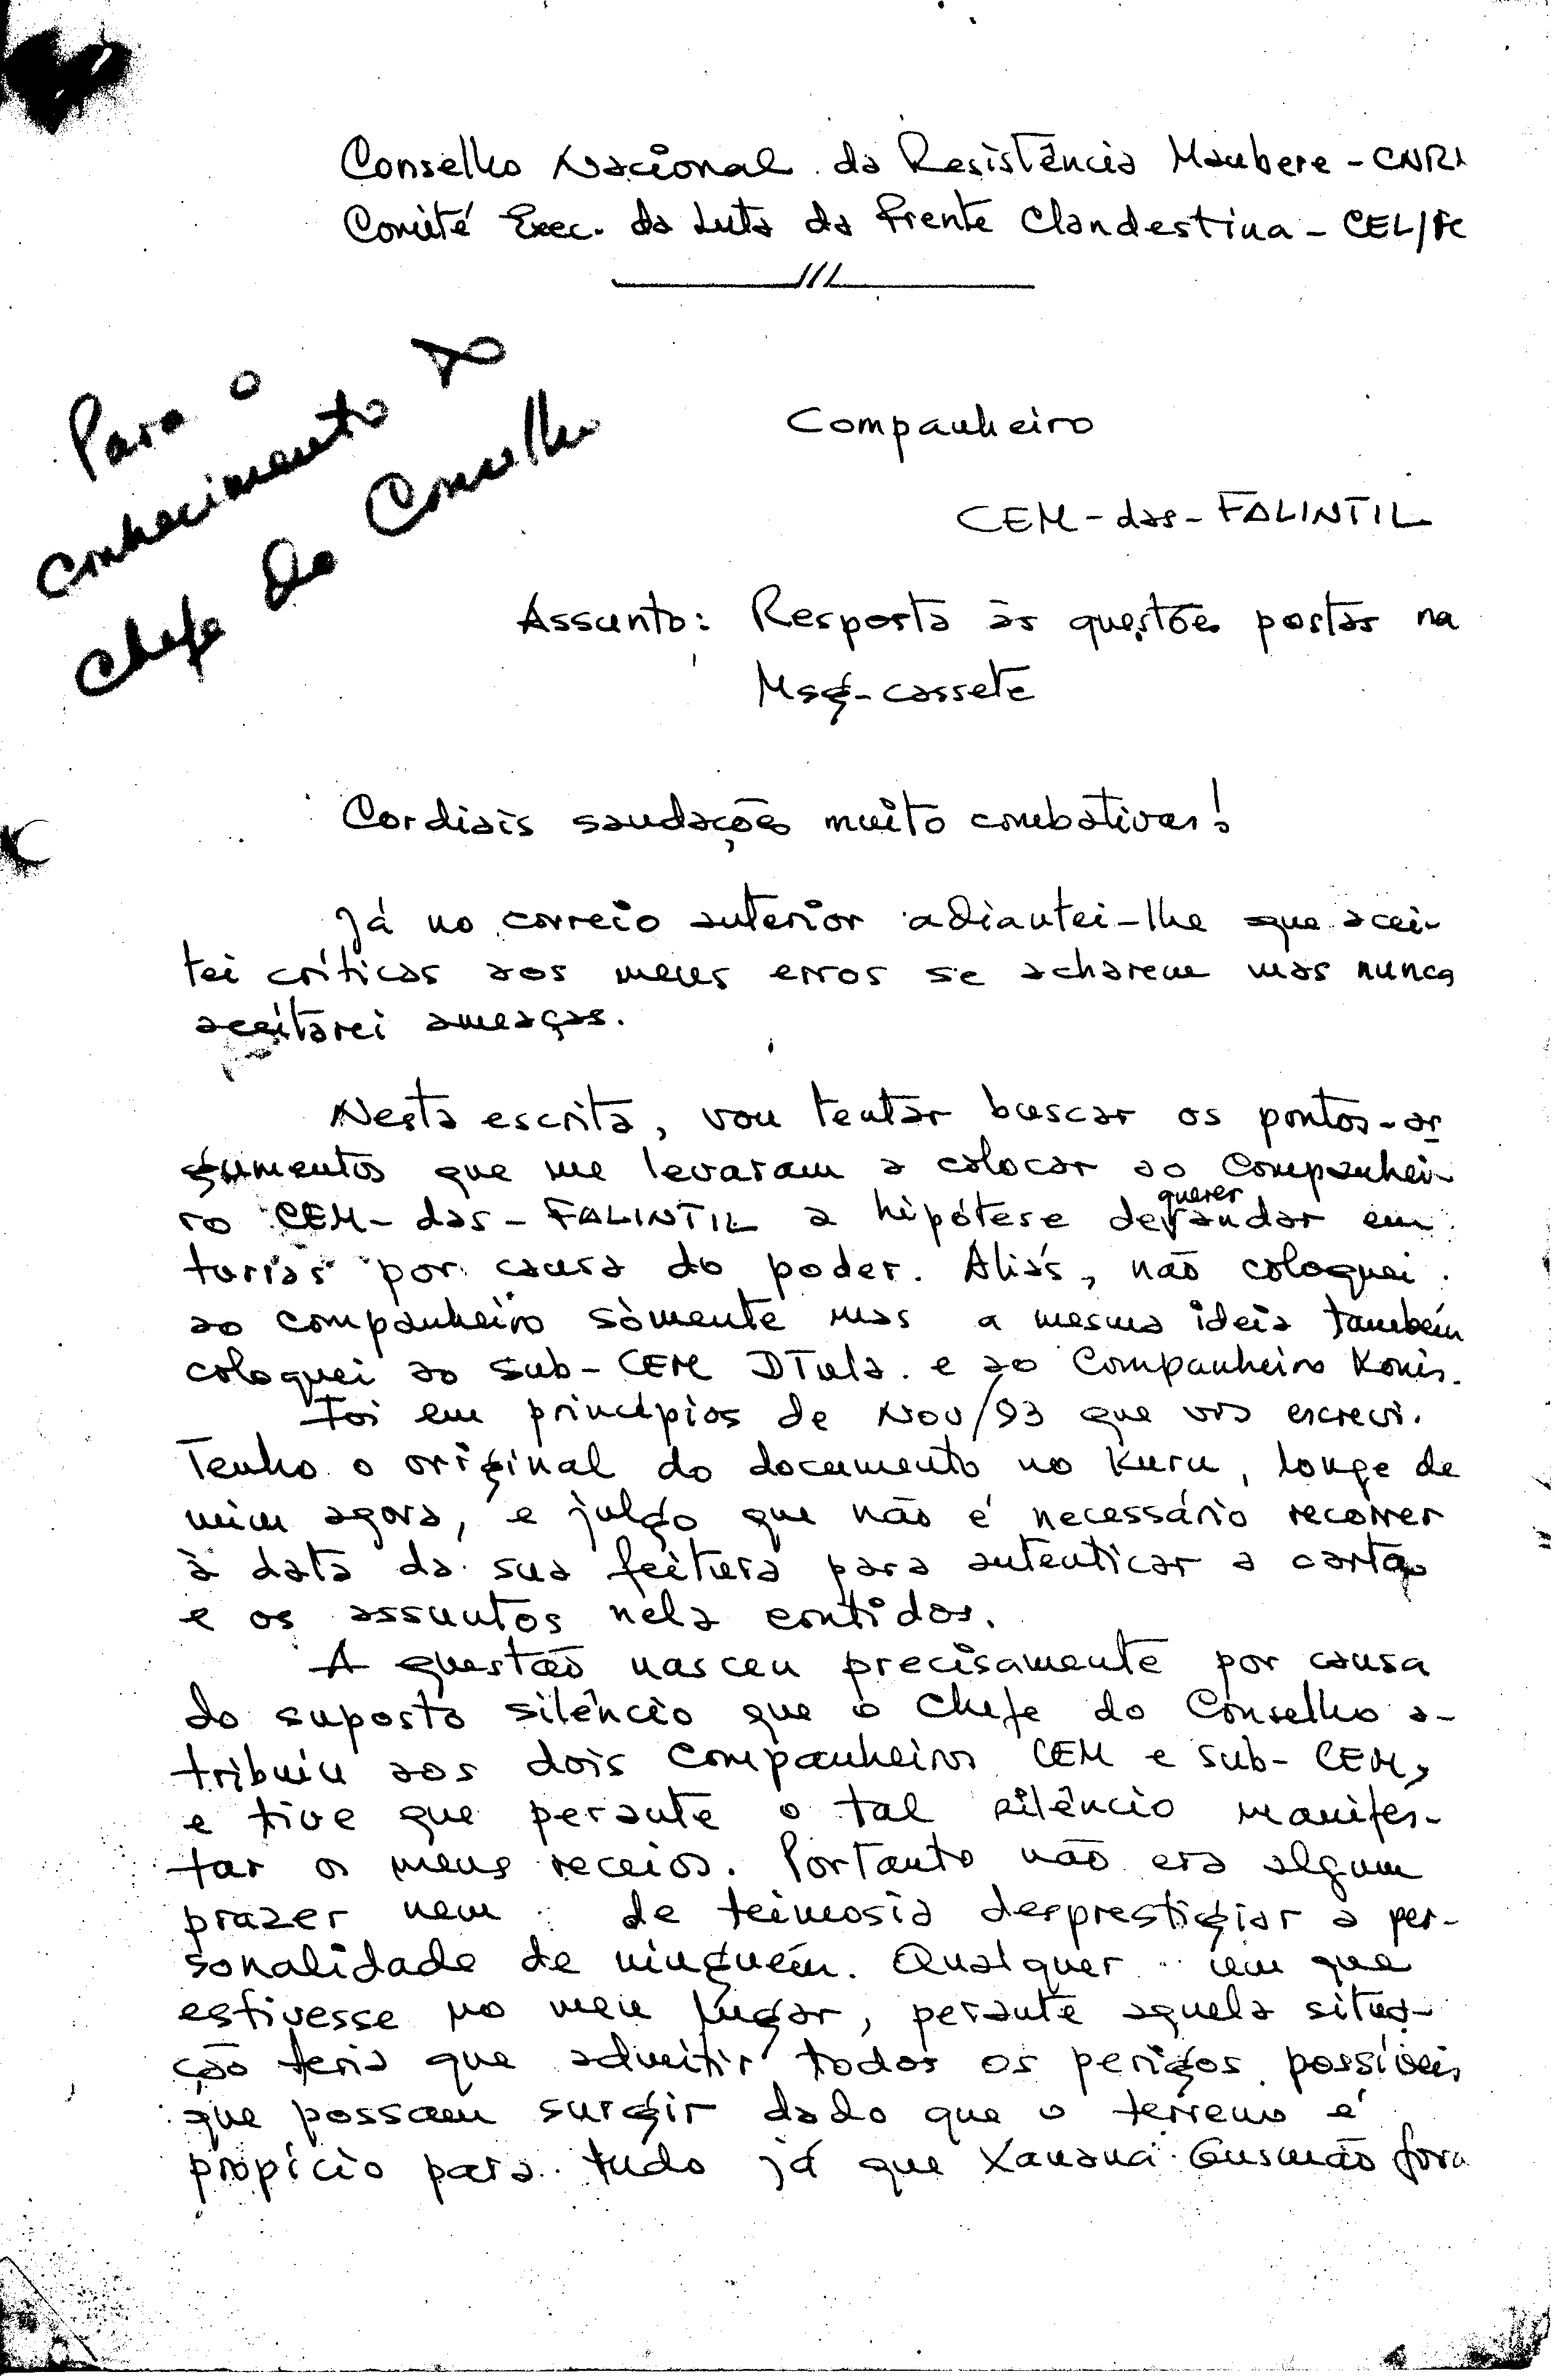 Conselho Nacional da Resistência Maubere - CNRM
Comité Exec. da Luta da Frente Clandestina - CEL/FC
Para o
conhecimento do
Chefe do Conselho
Companheiro
CEM-das-FALINTIL
Assunto: Resposta às questões postas na
Msg-cassete
Cordiais saudações muito combativas!
Já no correio anterior adiantei-lhe que acei-
tei críticas aos meus erros se acharem mas nunca
aceitarei ameaças.
Nesta escrita, vou tentar buscar os pontos-ar
gumentos que me levaram a colocar ao Companhei-
ro CEM-das-FALINTIL a hipótese de querer andar em
turras por causa do poder. Aliás, não coloquei
ao companheiro sòmente mas a mesma ideia também
coloquei ao sub-CEM DTula. e ao Companheiro Konis.
Foi em princípios de Nov/93 que vos escrevi.
Tenho o original do documento no Kuru, longe de
mim agora, e julgo que não é necessário recorrer
à data da sua feitura para autenticar a carta
e os assuntos nela contidos.
A questão nasceu precisamente por causa
do suposto silêncio que o Chefe do Conselho a-
tribuiu aos dois companheiros CEM e sub-CEM,
e tive que perante o tal silêncio manifes-
tar os meus receios. Portanto não era algum
prazer nem de teimosia desprestigiar a per-
sonalidade de ninguém. Qualquer um que
estivesse no meu lugar, perante aquela situa-
ção teria que admitir todos os perigos possíveis
que possam surgir dado que o terreno é
propício para tudo já que Xanana Gusmão fora